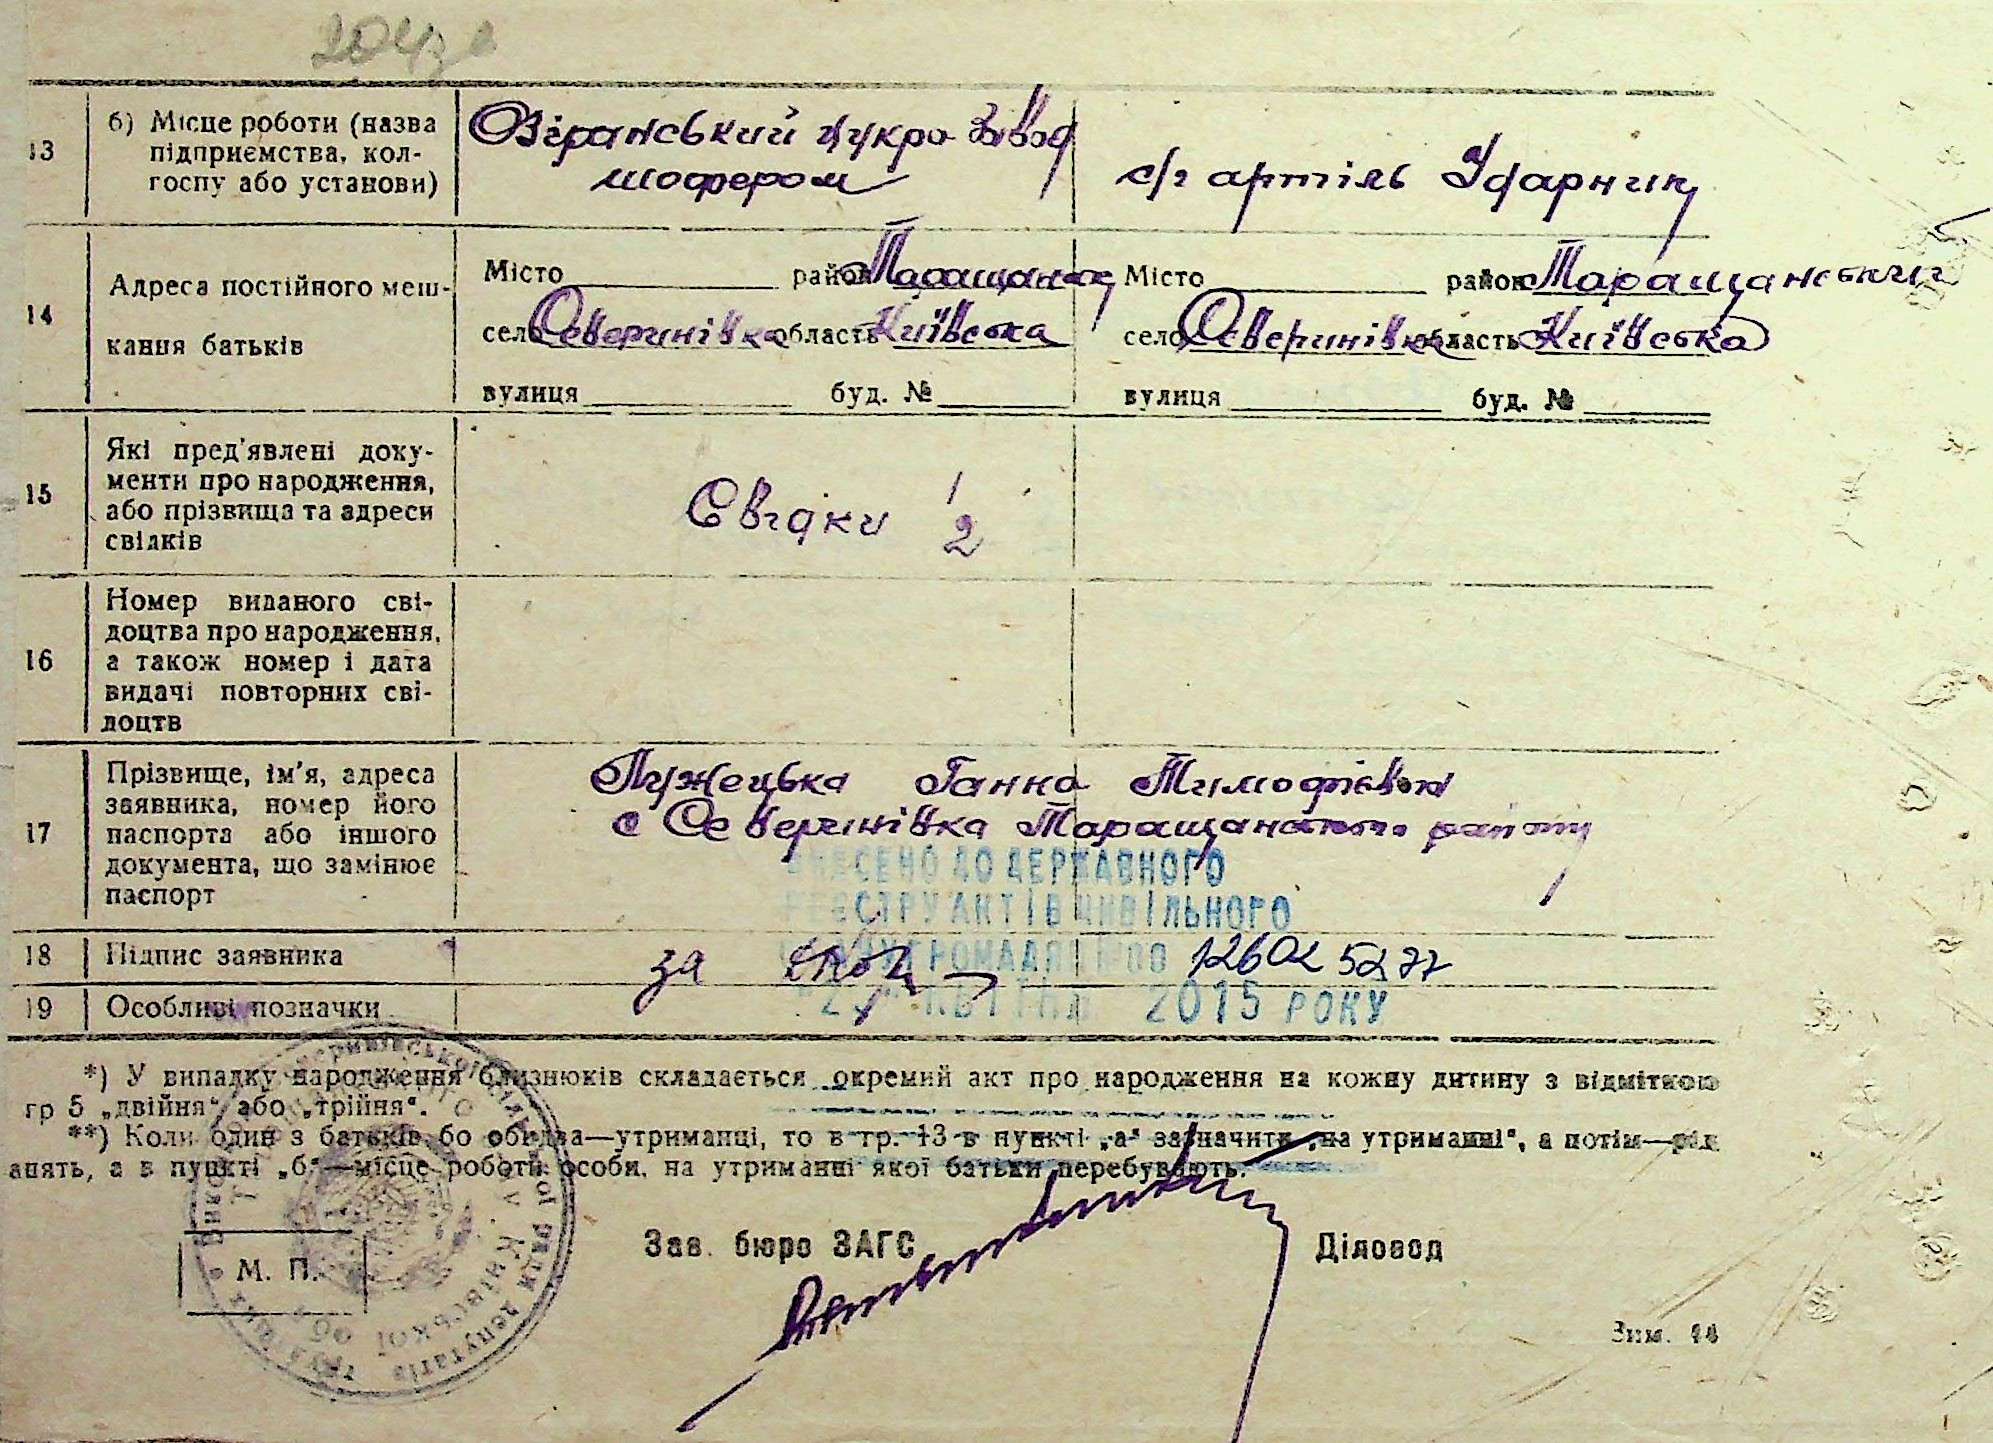 204
13
б) Місце роботи (назва
підприємства, кол-
госпу або установи)
цукро завод
шофером
с/г артіль Ударник
14
Адреса постійного меш-
кання батьків
Місто район Таращанськ
село Северинівка область Київська
вулиця буд. №
Місто район Таращанський
село Северинівка область Київська
вулиця буд. №
15
Які пред'явлені доку-
менти про народження,
або прізвища та адреси
свідків
Свідки 1
2
16
Номер виданого сві-
доцтва про народження,
а також номер і дата
видачі повторних сві-
доцтв
17
Прізвище, ім'я, адреса
заявника, номер його
паспорта або іншого
документа, що замінює
паспорт
Лужецька Ганна Тимофієвна
с Северинівка Таращанського району
ВНЕСЕНО ДО ДЕРЖАВНОГО
РЕЄСТРУ АКТІВ ЦИВІЛЬНОГО
СТАНУ ГРОМАДЯН №00 126025277
КВІТНЯ 2015 РОКУ
18
Підпис заявника
за
19
Особливі позначки
*) У випадку народження близнюків складається окремий акт про народження на кожну дитину з відміткою
гр 5 „двійня“ або „трійня“.
**) Коли один з батьків бо обидва—утриманці, то в гр. 13 в пункті „а“ зазначити „на утриманні“, а потім—рід
анять, а в пункті „б“—місце роботи особи, на утриманні якої батьки перебувають.
М. П.
Зав. бюро ЗАГС
Діловод
Зим. 44